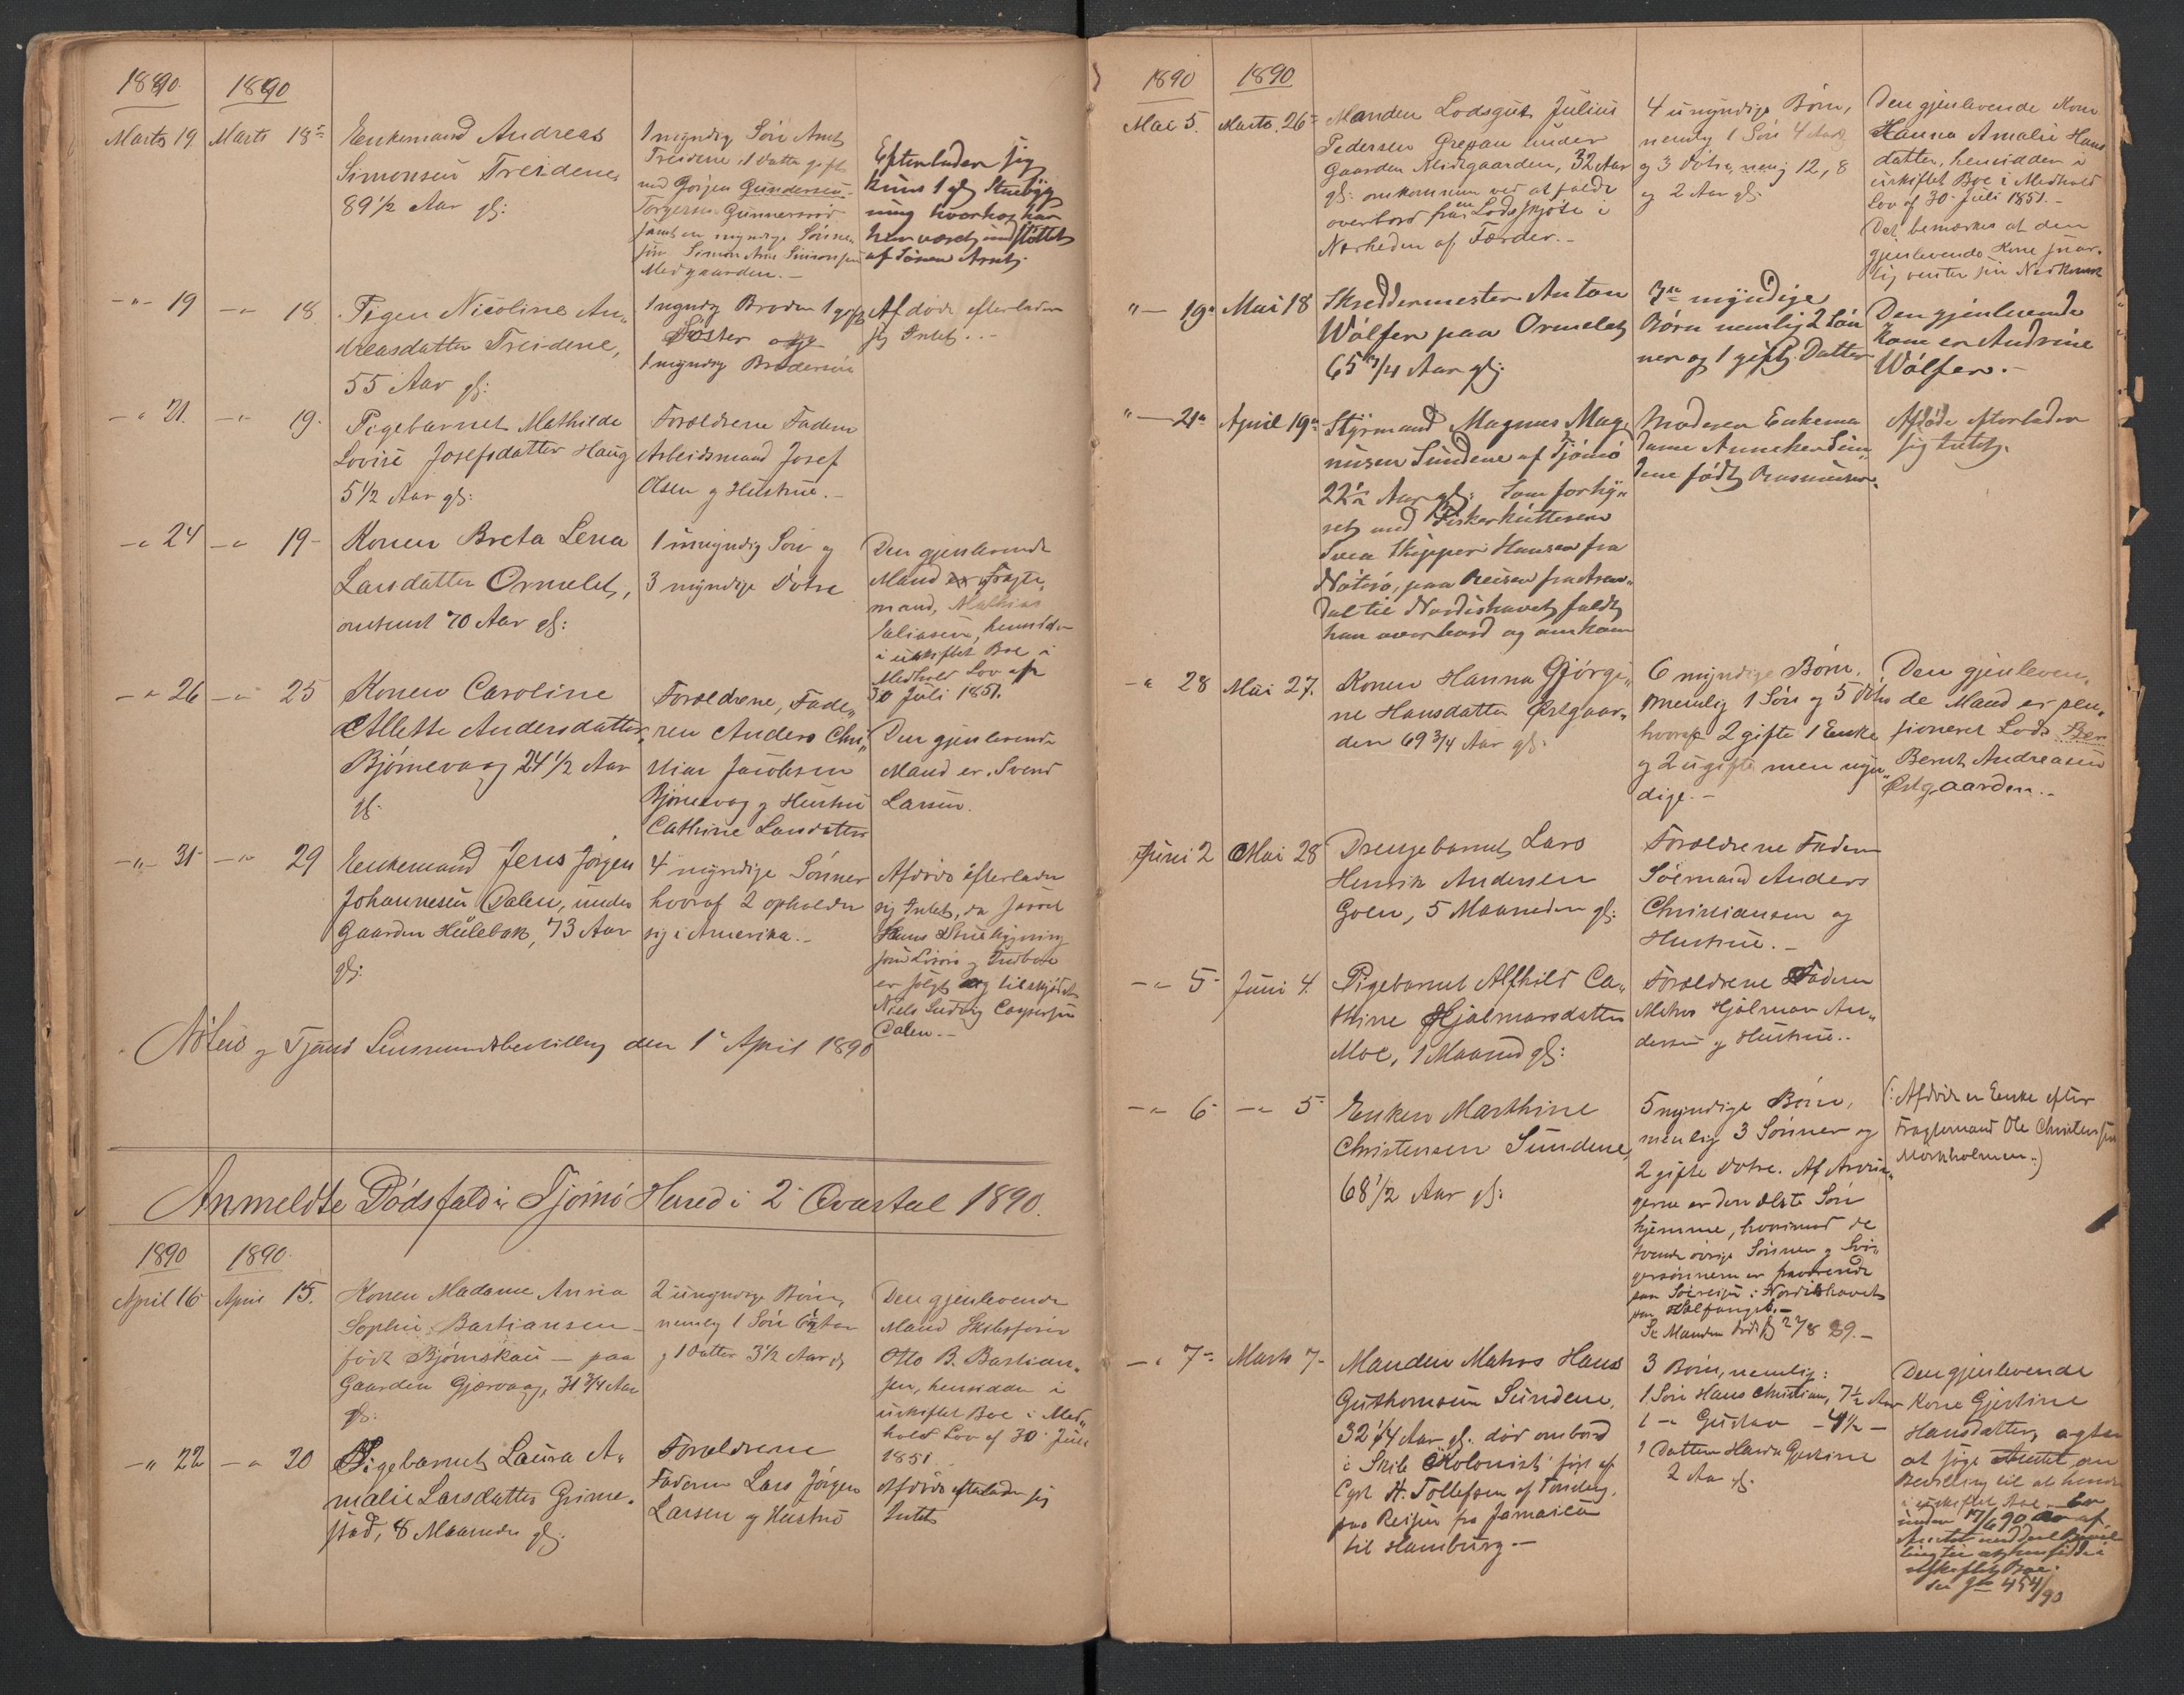 1890 1890
Marts 19. Marts 18de
Enkemand Andreas
Simonsen Treidene
89 1/2 Aar gl:
1 myndig Søn Arnt
Treidene, 1 Datter gift
med Jørgen Gundersen
Torgersen Gunnersrød
samt en myndig Sønne
søn Simon Simonsen
Medgaarden.-
Efterlader sig
kuns 1 gl Stuebyg
ning hvorhos han
har været understøttet
af Sønen Arnt
-"- 19 -"- 18.
Pigen Nicoline An„
dreasdatter Treidene,
55 Aar gl:
1 myndig Broder 1 gift
Søster og
1 myndig Brodersøn
Afdøde efterlader
sig Intet.-
-"- 21. -"- 19.
Pigebarnet Mathilde
Lovise Josefsdatter Haug
5 1/2 Aar gl:
Forældrene Faderen
Arbeidsmand Josef
Olsen og Hustrue.-
-"- 24 -"- 19-
Konen Breta Lena
Larsdatter Ormelet,
omtrent 70 Aar gl:
1 umyndig Søn og
3 myndige Døtre
Den gjenlevende
Mand er Fragte
mand, Mathias
Eliasen, hensidder
i uskiftet Boe i
Medhold Lov af
30 Juli 1851.
-"- 26 -"- 25
Konen Caroline
Allette Andersdatter
Bjørnevaag 24 1/2 Aar
gl.
Forældrene, Fade„
ren Anders Chri„
stian Jacobsen
Bjørnevaag og Hustru
Cathrine Larsdatter
Den gjenlevende
Mand er Svend
Larsen.
-"- 31- -"- 29
Enkemand Jens Jørgen
Johannesen Dalen, under
Gaarden Hulebak, 73 Aar
gl:
4 myndige Sønner
hvoraf 2 opholder
sig i Amerika.-
Afdøde efterlader
sig Intet, da saavel
hans Stuebygning
som Løsøre og Indbo
er solgt og tilskjødet
Niels Ludvig Caspersen
Dalen.-
Nøterø og Tjømø Lensmandsbestilling den 1e April 1890
Anmeldte Dødsfald i Tjømø Hered i 2- Qvartal 1890.
1890 1890
April 16 April 15.
Konen Madame Anna
Sophie Bastiansen
født Bjørnskau - paa
Gaarden Gjærvaag, 31 3/4 Aar
gl:
2 umyndige Børn,
nemlig 1 Søn 6 1/2 Aar
og 1 Datter 3 1/2 Aar gl
Den gjenlevende
Mand Skibsfører
Otto B. Bastian„
sen, hensidder i
uskiftet Boe i Med„
hold Lov af 30 Juli
1851
-"- 22 -"- 20
Pigebarnet Laura A„
malie Larsdatter Grime„
stad, 8 Maaneder gl:
Forældrene
Faderen Lars Jørgen
Larsen og Hustrue
Afdøde efterlader sig
Intet
1890 1890
Mai 5. Marts 26de
Manden Lodsgut Julius
Pedersen Grepan under
Gaarden Medgaarden, 32 Aar
gl: omkommen ved at falde
overbord fra en Lodsskjøite i
Nærheden af Færder.-
4 umyndige Børn,
nemlig 1 Søn 4 Aar
og 3 Døtre, nemlig 12, 8
og 2 Aar gl:
Den gjenlevende Kone
Hanna Amalie Hans
datter, hensidder i
uskiftet Boe i Medhold
Lov af 30 Juli 1851.-
Det bemærkes at den
gjenlevende Kone snar„
lig venter sin Nedkomst
"- 19de Mai 18
Skreddermester Anton
Wølfer paa Ormelet
65 3/4 Aar gl:
3de myndige
Børn nemlig 2 Søn
ner og 1 gift Datter
Den gjenlevende
Kone er Andrine
Wølfer.-
"- 21de April 19de
Styrmand Magnus Mag„
nusen Sundene af Tjømø
22 1/2 Aar gl: Som forhy„
ret med Fiskerkutteren
Svea Skipper Hansen fra
Nøterø, paa Reisen fra Aren„
dal til Nordishavet faldt
han overbord og omkom
Moderen Enkema
dame Anneken Sun„
dene født Rasmussen.
Afdøde efterlader
sig Intet.
-"- 28 Mai 27.
Konen Hanna Gjørgi„
ne Hansdatter Østgaar„
den 69 3/4 Aar gl.
6 myndige Børn.
nemlig 1 Søn og 5 Døtre
hvoraf 2 gifte 1 Enke
og 2 ugifte men myn„
dige.-
Den gjenleven„
de Mand er pen„
sioneret Lods Ber
Bernt Andreasen
Østgaarden.-
Juni 2 Mai 28
Drengebarnet Lars
Henrik Andersen
Goen, 5 Maaneder gl:
Forældrene Faderen
Sømand Anders
Christiansen og
Hustrue.-
-"- 5- Juni 4.
Pigebarnet Alfhild Ca„
thine Hjalmarsdatter
Moe, 1 Maaned gl:
Forældrene Faderen
Matros Hjalmar An„
dersen og Hustrue.-
-"- 6- -"- 5-
Enken Marthine
Christensen Sundene,
68 1/2 Aar gl:
5 myndige Børn,
nemlig 3 Sønner og
2 gifte Døtre. Af Arvin„
gerne er den ældste Søn
hjemme, hvorimod de
tvende øvrige Sønner og Svi„
gersønnerne er fraværende
paa Søreiser i Nordishavet
paa Hvalfangst.-
Se Manden død 27/8 89.-
(: Afdøde er Enke efter
Fragtemand Ole Christensen
Mørkholmen:)
-"- 7- Marts 7-
Manden Matros Hans
Guthormsen Sundene,
32 1/4 Aar gl. død ombord
i Skib "Kolonist" ført af
Capt. H. Tollefsen af Tønsberg.
paa Reisen fra Jamaica
til Hamburg.-
3 Børn, nemlig:
1 Søn Hans Christian, 7 1/2 Aar
1 -"- Gustav - 4 1/2 -
1 Datter Hanna Gjestine
2 Aar gl.
Den gjenlevende
Kone Gjestine
Hansdatter, agter
at søge Amtet om
Bevilling til at hensidde
i uskiftet Boe. Er
under 17/6 90 af
Amtet meddelt Bevil
ling til at hensidde i
uskiftet Boe.
se 454/90